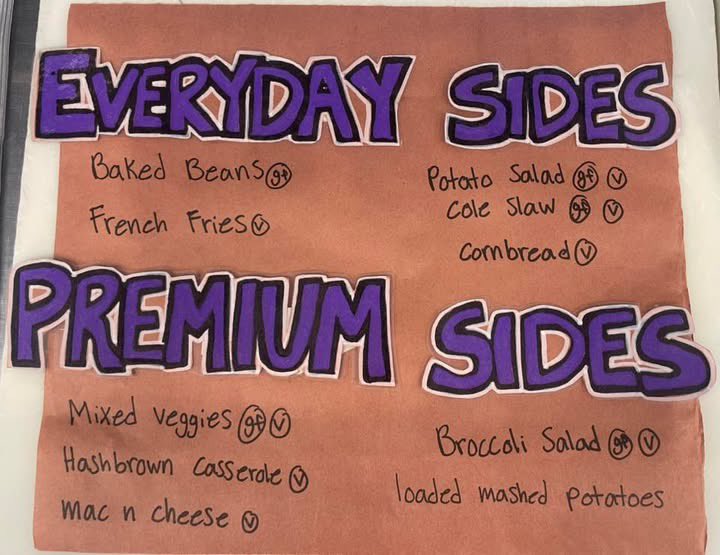 EVERYDAY SIDES
Baked Beans gf
French Fries v
Potato Salad gf v
Cole Slaw gf v
Cornbread v
PREMIUM SIDES
Mixed veggies gf v
Hashbrown casserole v
mac n cheese v
Broccoli Salad gf v
loaded mashed potatoes